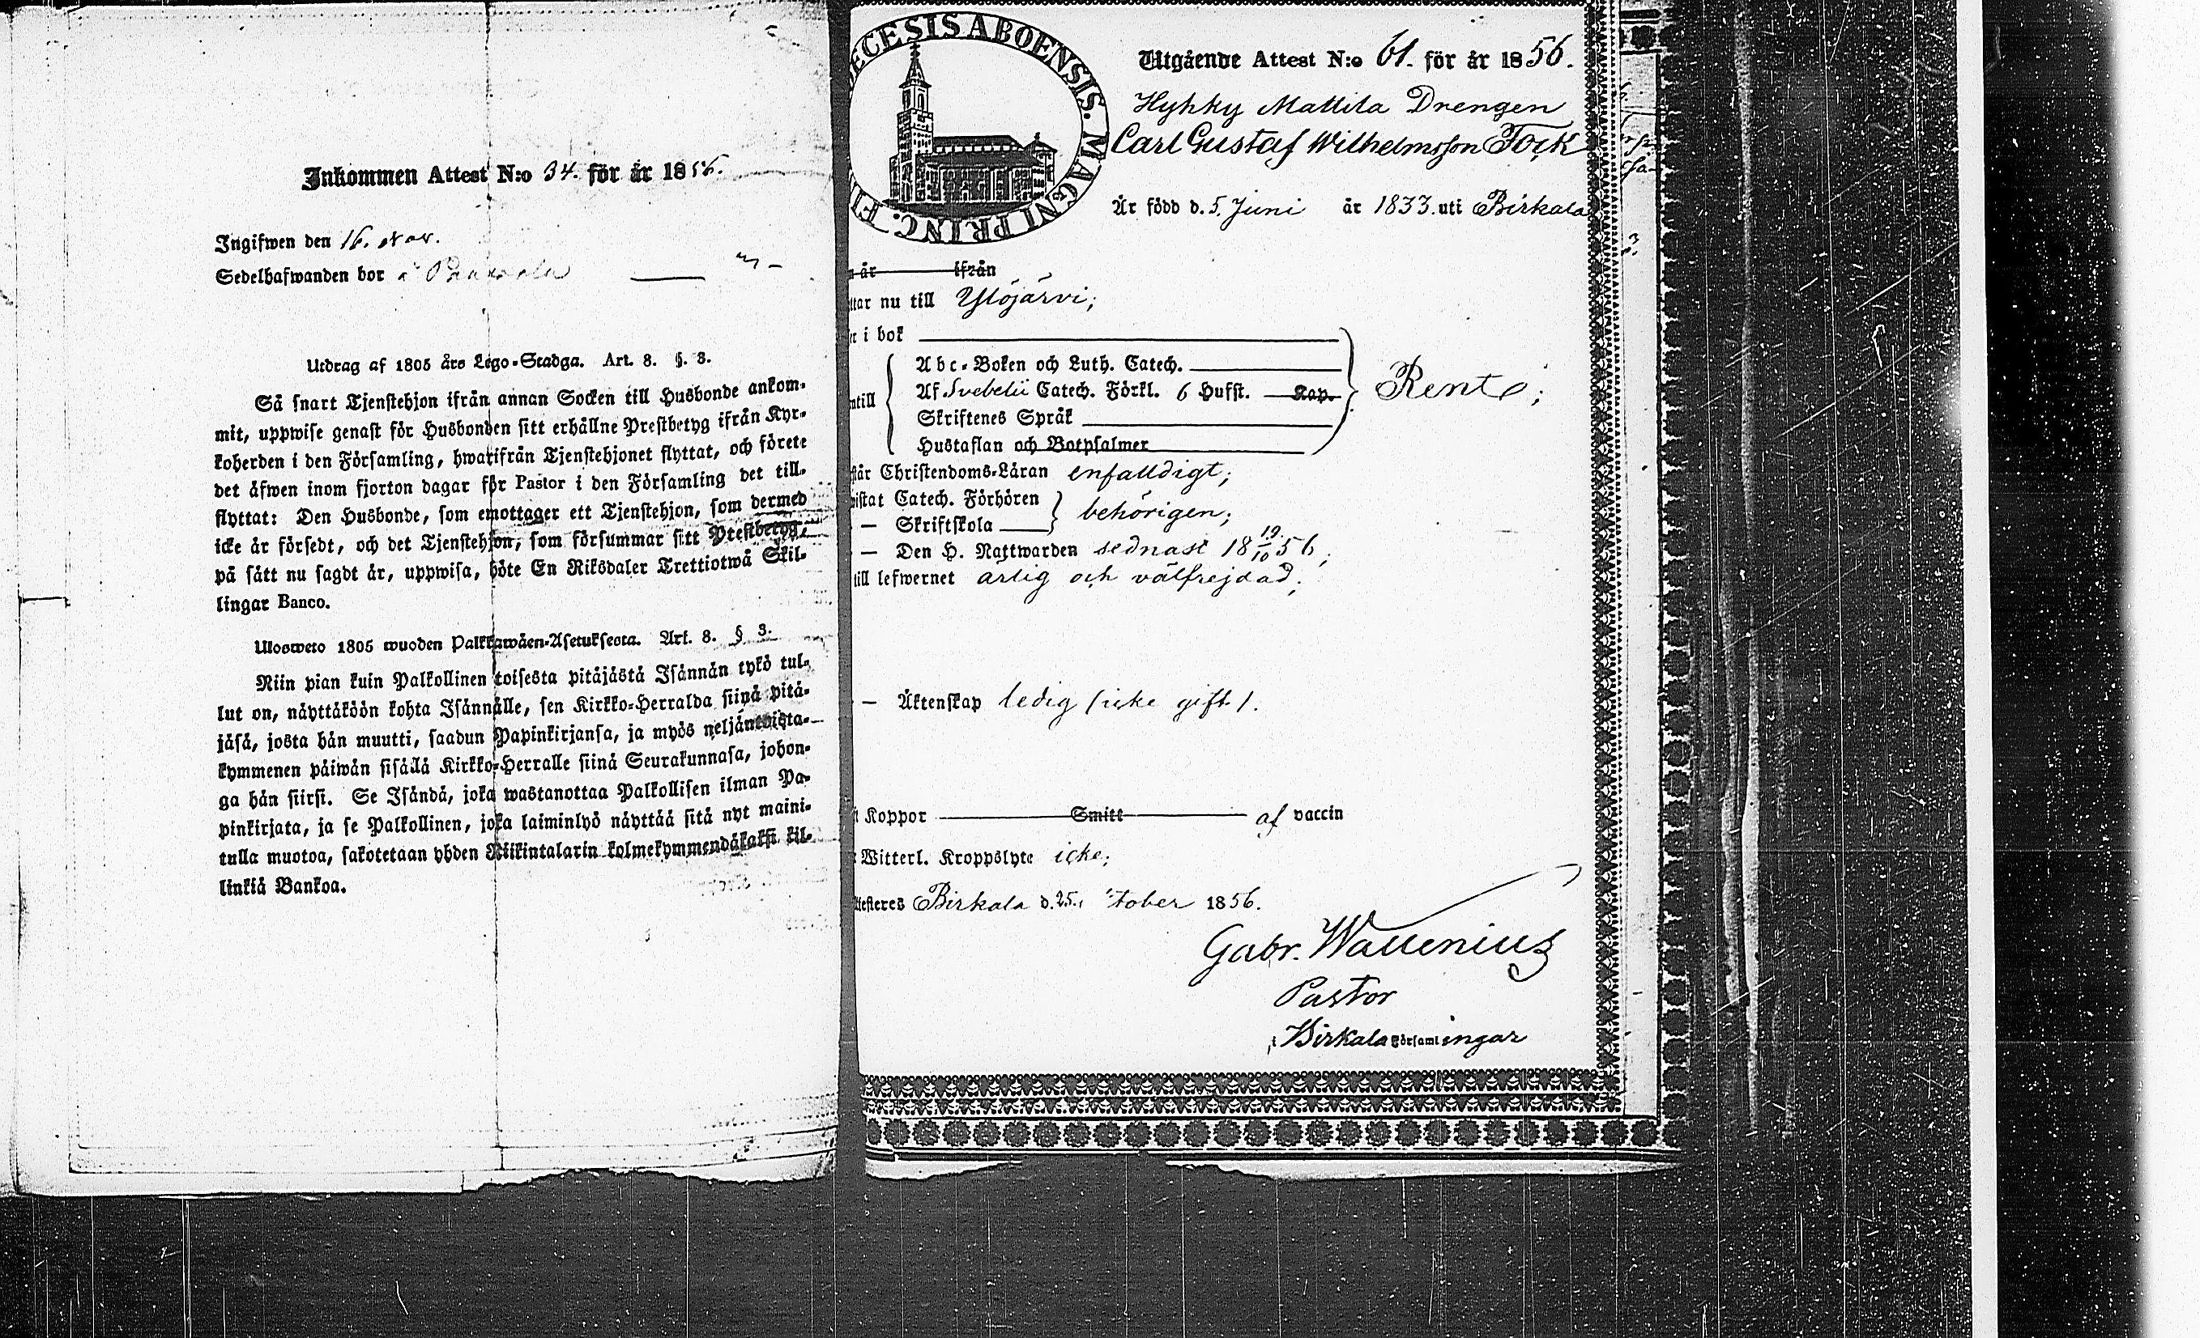 Inkommen Attest N:o 34. för år 1856.
Ingifwen den 16. Nov.
Sedelhafwanden bor å
Utdrag af 1805 års Lego-Stadga. Art. 8. §. 3.
Så snart Tjenstehjon ifrån annan Socken till Husbonde ankom-
mit, uppwise genast för Husbonden sitt erhållne Prestbetyg ifrån Kyr-
koherden i den Församling, hwarifrån Tjenstehjonet flyttat, och förete
det äfwen inom fjorton dagar för Pastor i den Församling det till-
flyttat: Den Husbonde, som emottager ett Tjenstehjon, som dermed
icke är försedt, och det Tjenstehjon, som försummar sitt Prestbetyg,
på sätt nu sagdt är, uppwisa, böte En Riksdaler Trettiotwå Skil-
lingar Banco.
Ulosweto 1805 wuoden Palkkawäen-Asetuksesta. Art. 8. § 3.
Niin pian kuin Palkollinen toisesta pitäjästä Isännän tykö tul-
lut on, näyttäköön kohta Isännälle, sen Kirkko-Herralda siinä pitä-
jäsä, josta hän muutti, saadun Papinkirjansa, ja myös neljäntoista-
kymmenen päiwän sisällä Kirkko-Herralle siinä Seurakunnasa, johon-
ga hän siirsi. Se Isändä, joka wastanottaa Palkollisen ilman Pa-
pinkirjata, ja se Palkollinen, joka laiminlyö näyttää sitä nyt maini-
tulla muotoa, sakotetaan yhden Riikintalarin kolmekymmendäkaksi kil-
linkiä Bankoa.
ECESIS ABOENSIS. MAGNI PRINC. FI
Utgående Attest N:o 61. för år 1856.
Hyhky Mattila Drengen
Carl Gustaf Wilhelmsson Fock
Är född d. 5. Juni år 1833. uti Birkala
år ifrån
ttar nu till Ylöjärvi;
i bok
Abc-Boken och Luth. Catech.
Af Svebelii Catech. Förkl. 6 Hufst. Kap.
ntill
Skriftenes Språk
Hustaflan och Botpsalmer
Rent;
står Christendoms-Läran enfalldigt;
wistat Catech. Förhören
— Skriftskola
behörigen;
— Den H. Nattwarden sednast 18 19/10 56;
till lefwernet ärlig och välfrejdad;
— Äktenskap ledig (icke gift).
Koppor Smitt af vaccin
Witterl. Kroppslyte icke;
testeres Birkala d. 25. tober 1856.
Gabr. Wallenius
Pastor
i Birkala Församlingar